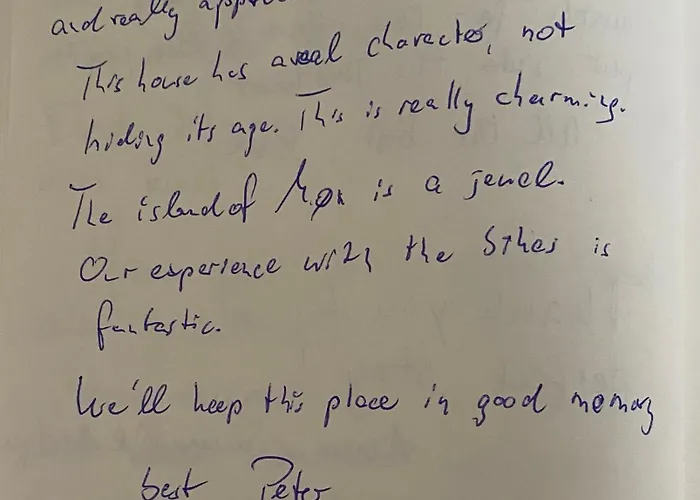 and really
This house has a real character, not
hiding its age. This is really charming.
The island of Møn is a jewel.
Our experience with the is
fantastic.
We'll keep this place in good memory
best Peter